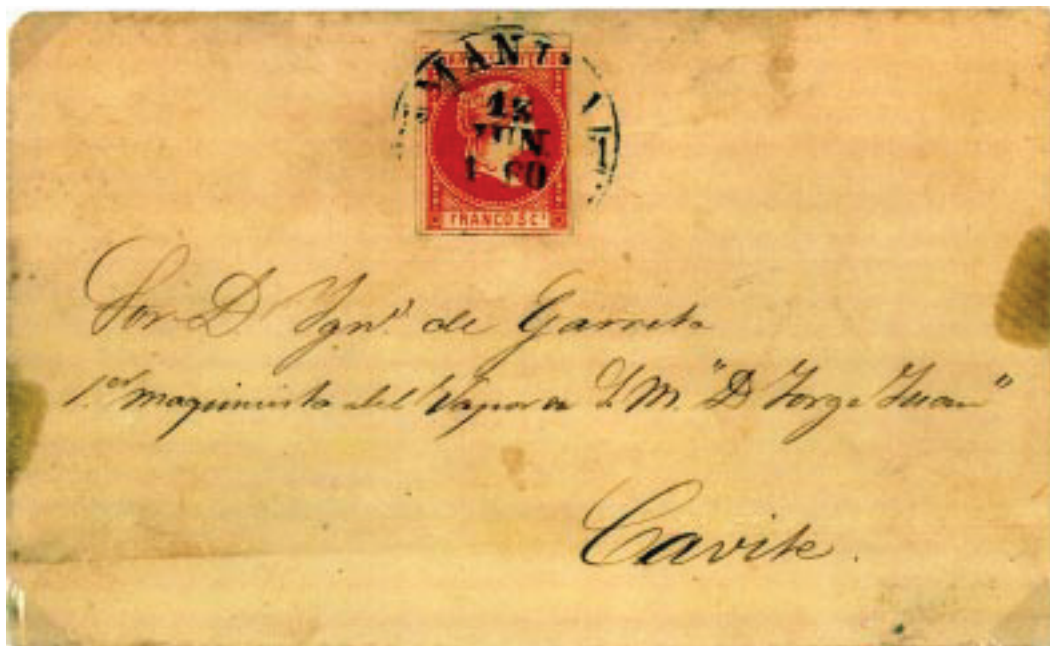 MANILA
18
JUN
1860
FRANCO. 5 Cs.
Sor. D. Ign.º de Garreta
1.er maquinista del Vapor de S. M. "D. Jorge Juan"
Cavite.